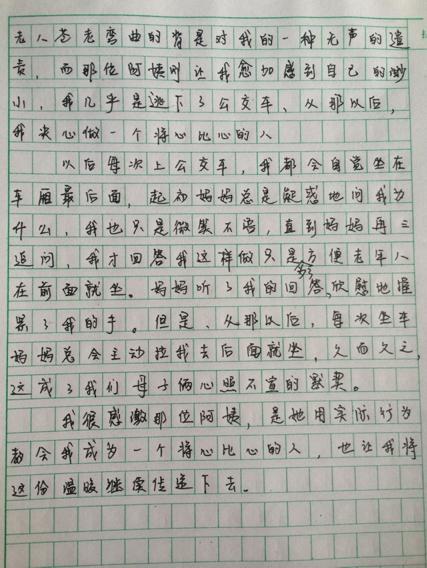 老人苍老弯曲的背是对我的一种无声的谴
责，而那位阿姨则让我愈加感到自己的渺
小，我几乎是逃下了公交车、从那以后，
我决心做一个将心比心的人
以后每次上公交车，我都会自觉坐在
车厢最后面，起初妈妈总是疑惑地问我为
什么，我也只是微笑不语，直到妈妈再三
追问，我才回答我这样做只是方便老年人
在前面就坐。妈妈听了我的回答，欣慰地握
紧了我的手。但是、从那以后，每次坐车
妈妈总会主动拉我去后面就坐，久而久之，
这成了我们母子俩心照不宣的默契。
我很感激那位阿姨，是她用实际行为
教会我成为一个将心比心的人，也让我将
这份温暖继续传递下去。